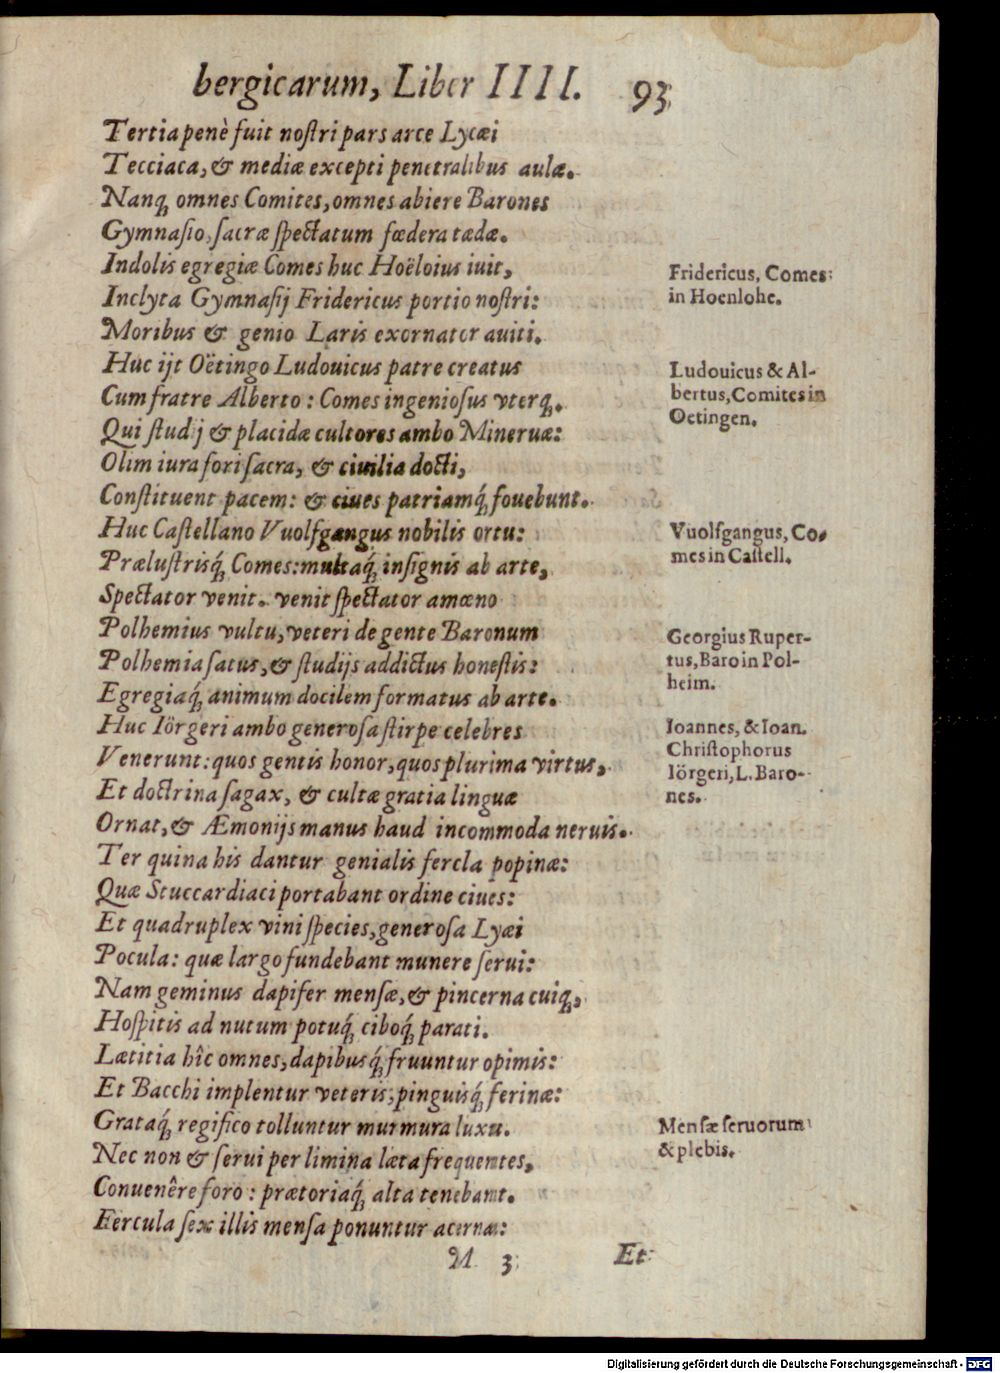 bergicarum, Liber IIII. 93
Tertia penè fuit noſtri pars arce Lycæi
Tecciaca, & mediæ excepti penetralibus aulæ.
Nanq; omnes Comites, omnes abiere Barones
Gymnaſio, ſacræ ſpectatum fœdera tædæ.
Indolis egregiæ Comes huc Hoëloius iuit,
Fridericus, Comes
in Hoenlohe.
Inclyta Gymnaſij Fridericus portio noſtri:
Moribus & genio Laris exornator auiti.
Huc ijt Oëtingo Ludouicus patre creatus
Ludouicus & Al-
bertus, Comites in
Oetingen.
Cum fratre Alberto: Comes ingenioſus vterq;.
Qui ſtudij & placidæ cultores ambo Mineruæ:
Olim iura fori ſacra, & ciuilia docti,
Conſtituent pacem: & ciues patriamq́; fouebunt.
Huc Caſtellano Vuolfgangus nobilis ortu:
Vuolfgangus, Co-
mes in Caſtell.
Præluſtrisq́; Comes: multaq́; inſignis ab arte,
Spectator venit. venit ſpectator amœno
Polhemius vultu, veteri de gente Baronum
Georgius Ruper-
tus, Baro in Pol-
heim.
Polhemia ſatus, & ſtudijs addictus honeſtis:
Egregiaq́; animum docilem formatus ab arte.
Huc Iörgeri ambo generoſa ſtirpe celebres
Ioannes, & Ioan.
Chriſtophorus
Iörgeri, L. Baro-
nes.
Venerunt: quos gentis honor, quos plurima virtus,
Et doctrina ſagax, & cultæ gratia linguæ
Ornat, & Æmonijs manus haud incommoda neruis.
Ter quina his dantur genialis fercla popinæ:
Quæ Stuccardiaci portabant ordine ciues:
Et quadruplex vini ſpecies, generoſa Lyæi
Pocula: quæ largo fundebant munere ſerui:
Nam geminus dapifer menſæ, & pincerna cuiq;,
Hoſpitis ad nutum potuq́; ciboq́; parati.
Lætitia hîc omnes, dapibusq́; fruuntur opimis:
Et Bacchi implentur veteris, pinguisq́; ferinæ:
Grataq́; regifico tolluntur murmura luxu.
Menſæ ſeruorum
& plebis.
Nec non & ſerui per limina læta frequentes,
Conuenêre foro: prætoriaq́; alta tenebant.
Fercula ſex illis menſa ponuntur acernæ:
M 3 Et
Digitalisierung gefördert durch die Deutsche Forschungsgemeinschaft - DFG